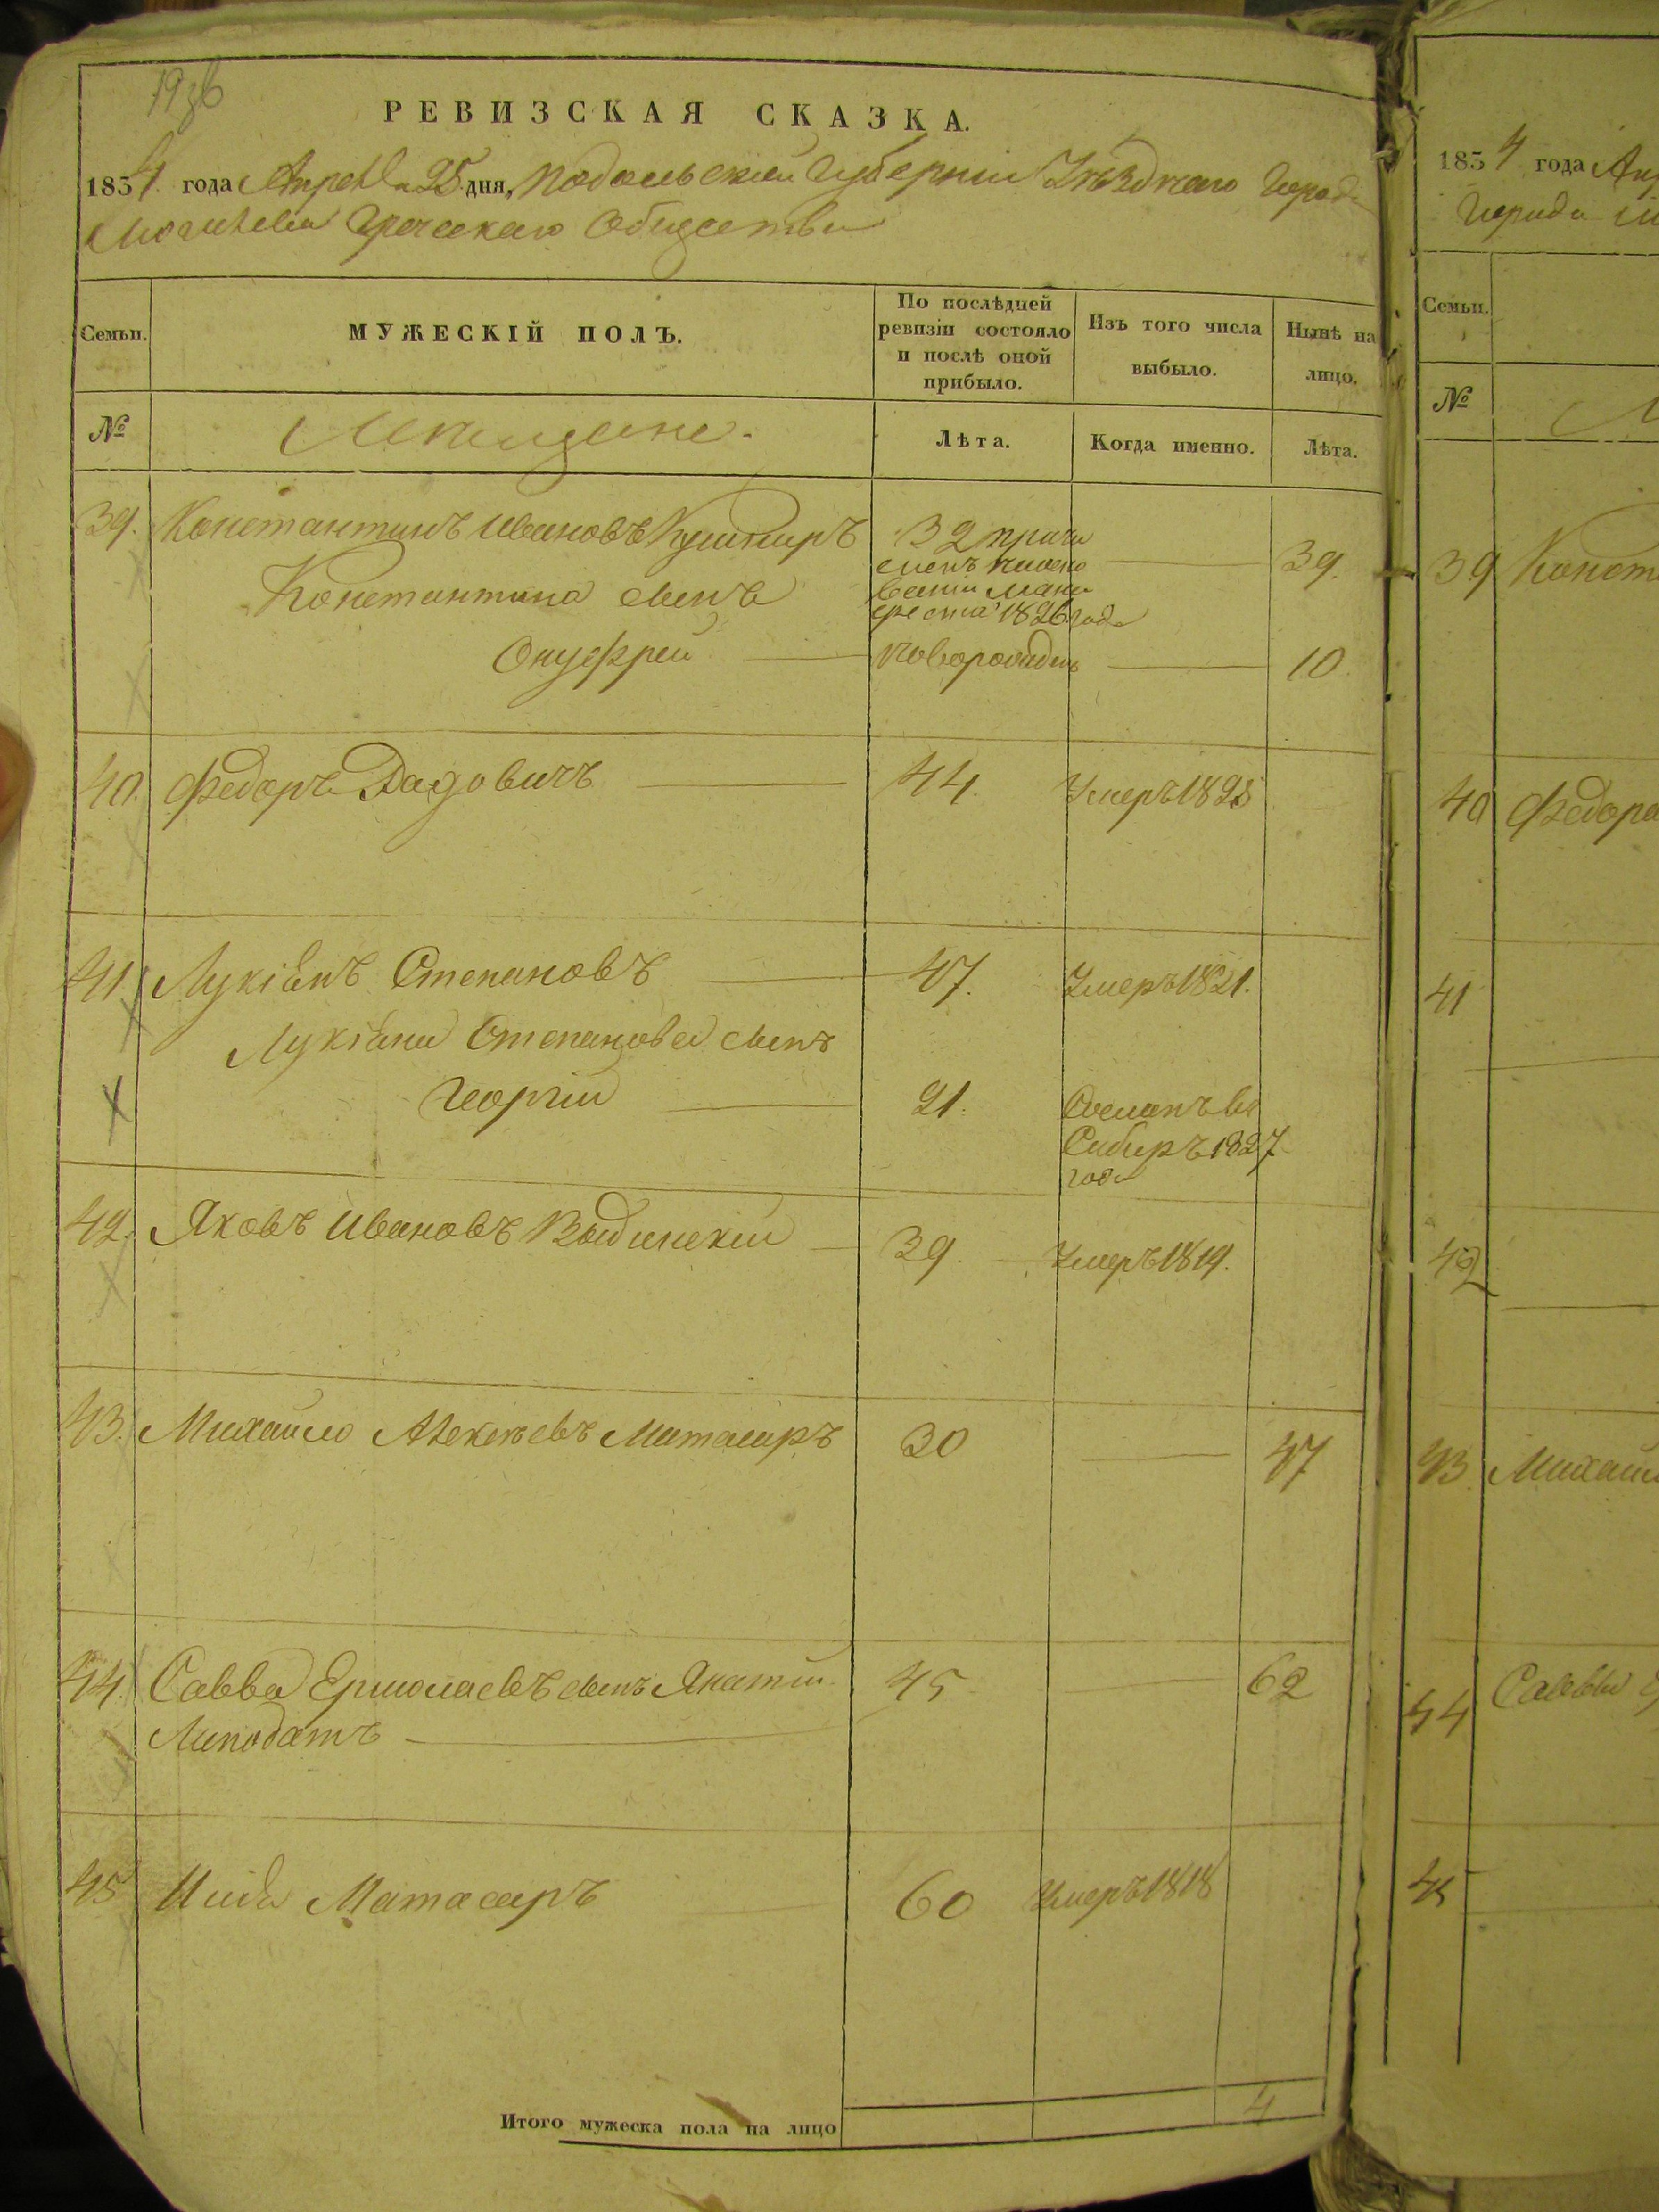 РЕВИЗСКАЯ СКАЗКА.
1834 года Апреля 25 дня, Подольской Губернии Уѣзднаго Города
Могилева Греческаго Общества
Семьи.
МУЖЕСКІЙ ПОЛЪ.
По послѣдней
ревизіи состояло
и послѣ оной
прибыло.
Изъ того числа
выбыло.
Нынѣ на
лицо.
№
Мещане.
Лѣта.
Когда именно.
Лѣта.
39. Константинъ Ивановъ Кушниръ 32 39.
Константина сынъ
феста 1826 года
Онуфрей новорожденъ 10.
40. Федоръ 44. Умеръ 1828
41 Лукіянъ Степановъ 47. Умеръ 1821.
Лукіяна Степанова сынъ
Георгій 21. Сосланъ въ
Сибирь 1827
года
42. Яковъ Ивановъ 39 Умеръ 1819.
43. Михайло Алексѣевъ Матасаръ 30 47
44. Савва Ермолаевъ сынъ 45 62
45 Матасаръ 60 Умеръ 1818
Итого мужеска пола на лицо 4
1834 года
Города
Семьи.
№
39
40 Федора
41
42
43
44 Саввы
45